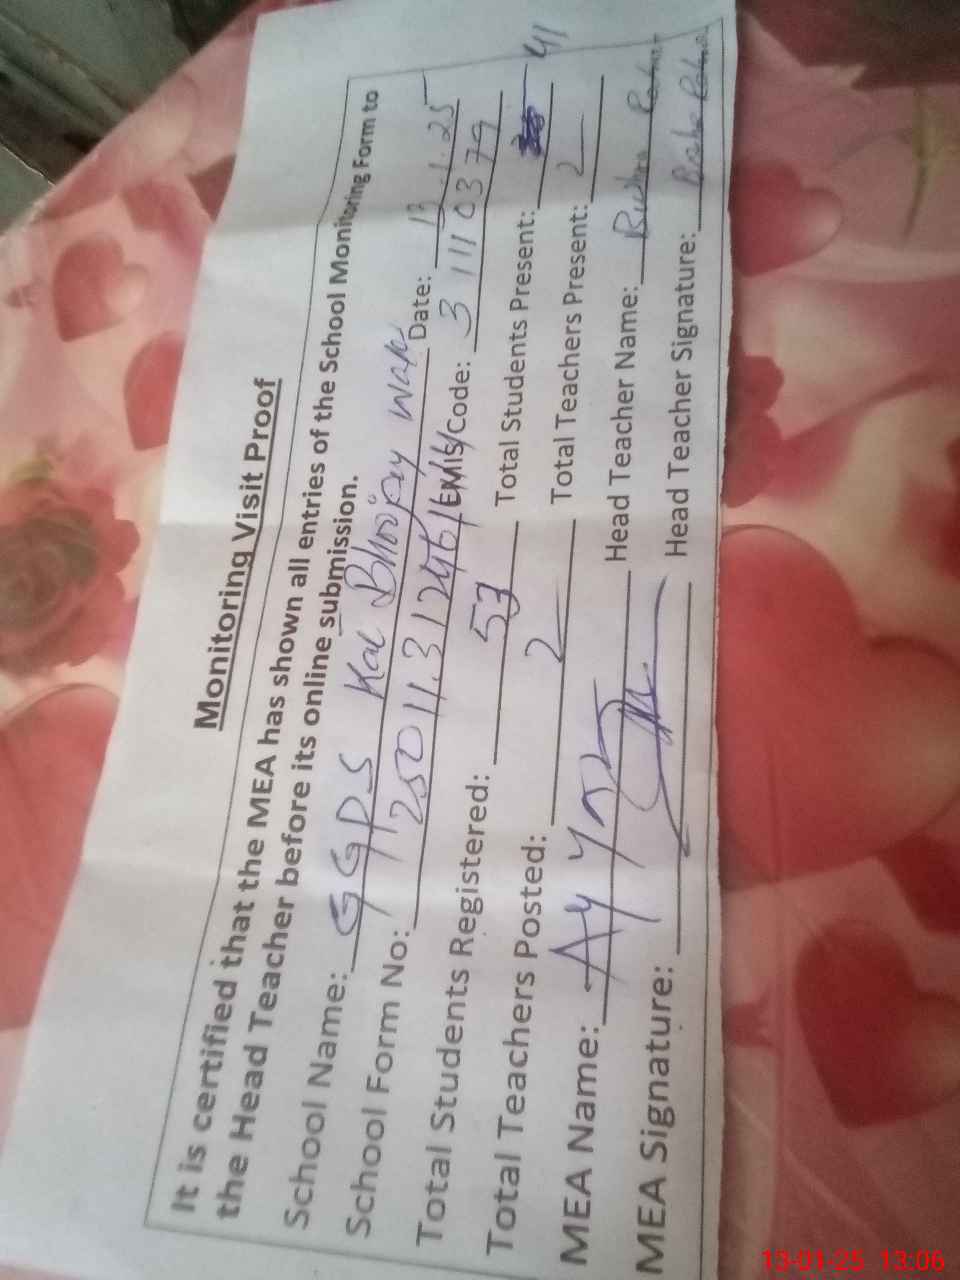 Monitoring Visit Proof
It is certified that the MEA has shown all entries of the School Monitoring Form to
the Head Teacher before its online submission.
School Name: GGPS Kal Bhoojay Date: 13.1.25
School Form No: EMIS/Code: 31110379
Total Students Registered: 53 Total Students Present: 41
Total Teachers Posted: 2 Total Teachers Present: 2
MEA Name: Head Teacher Name:
MEA Signature: Head Teacher Signature:
13-01-25 13:06